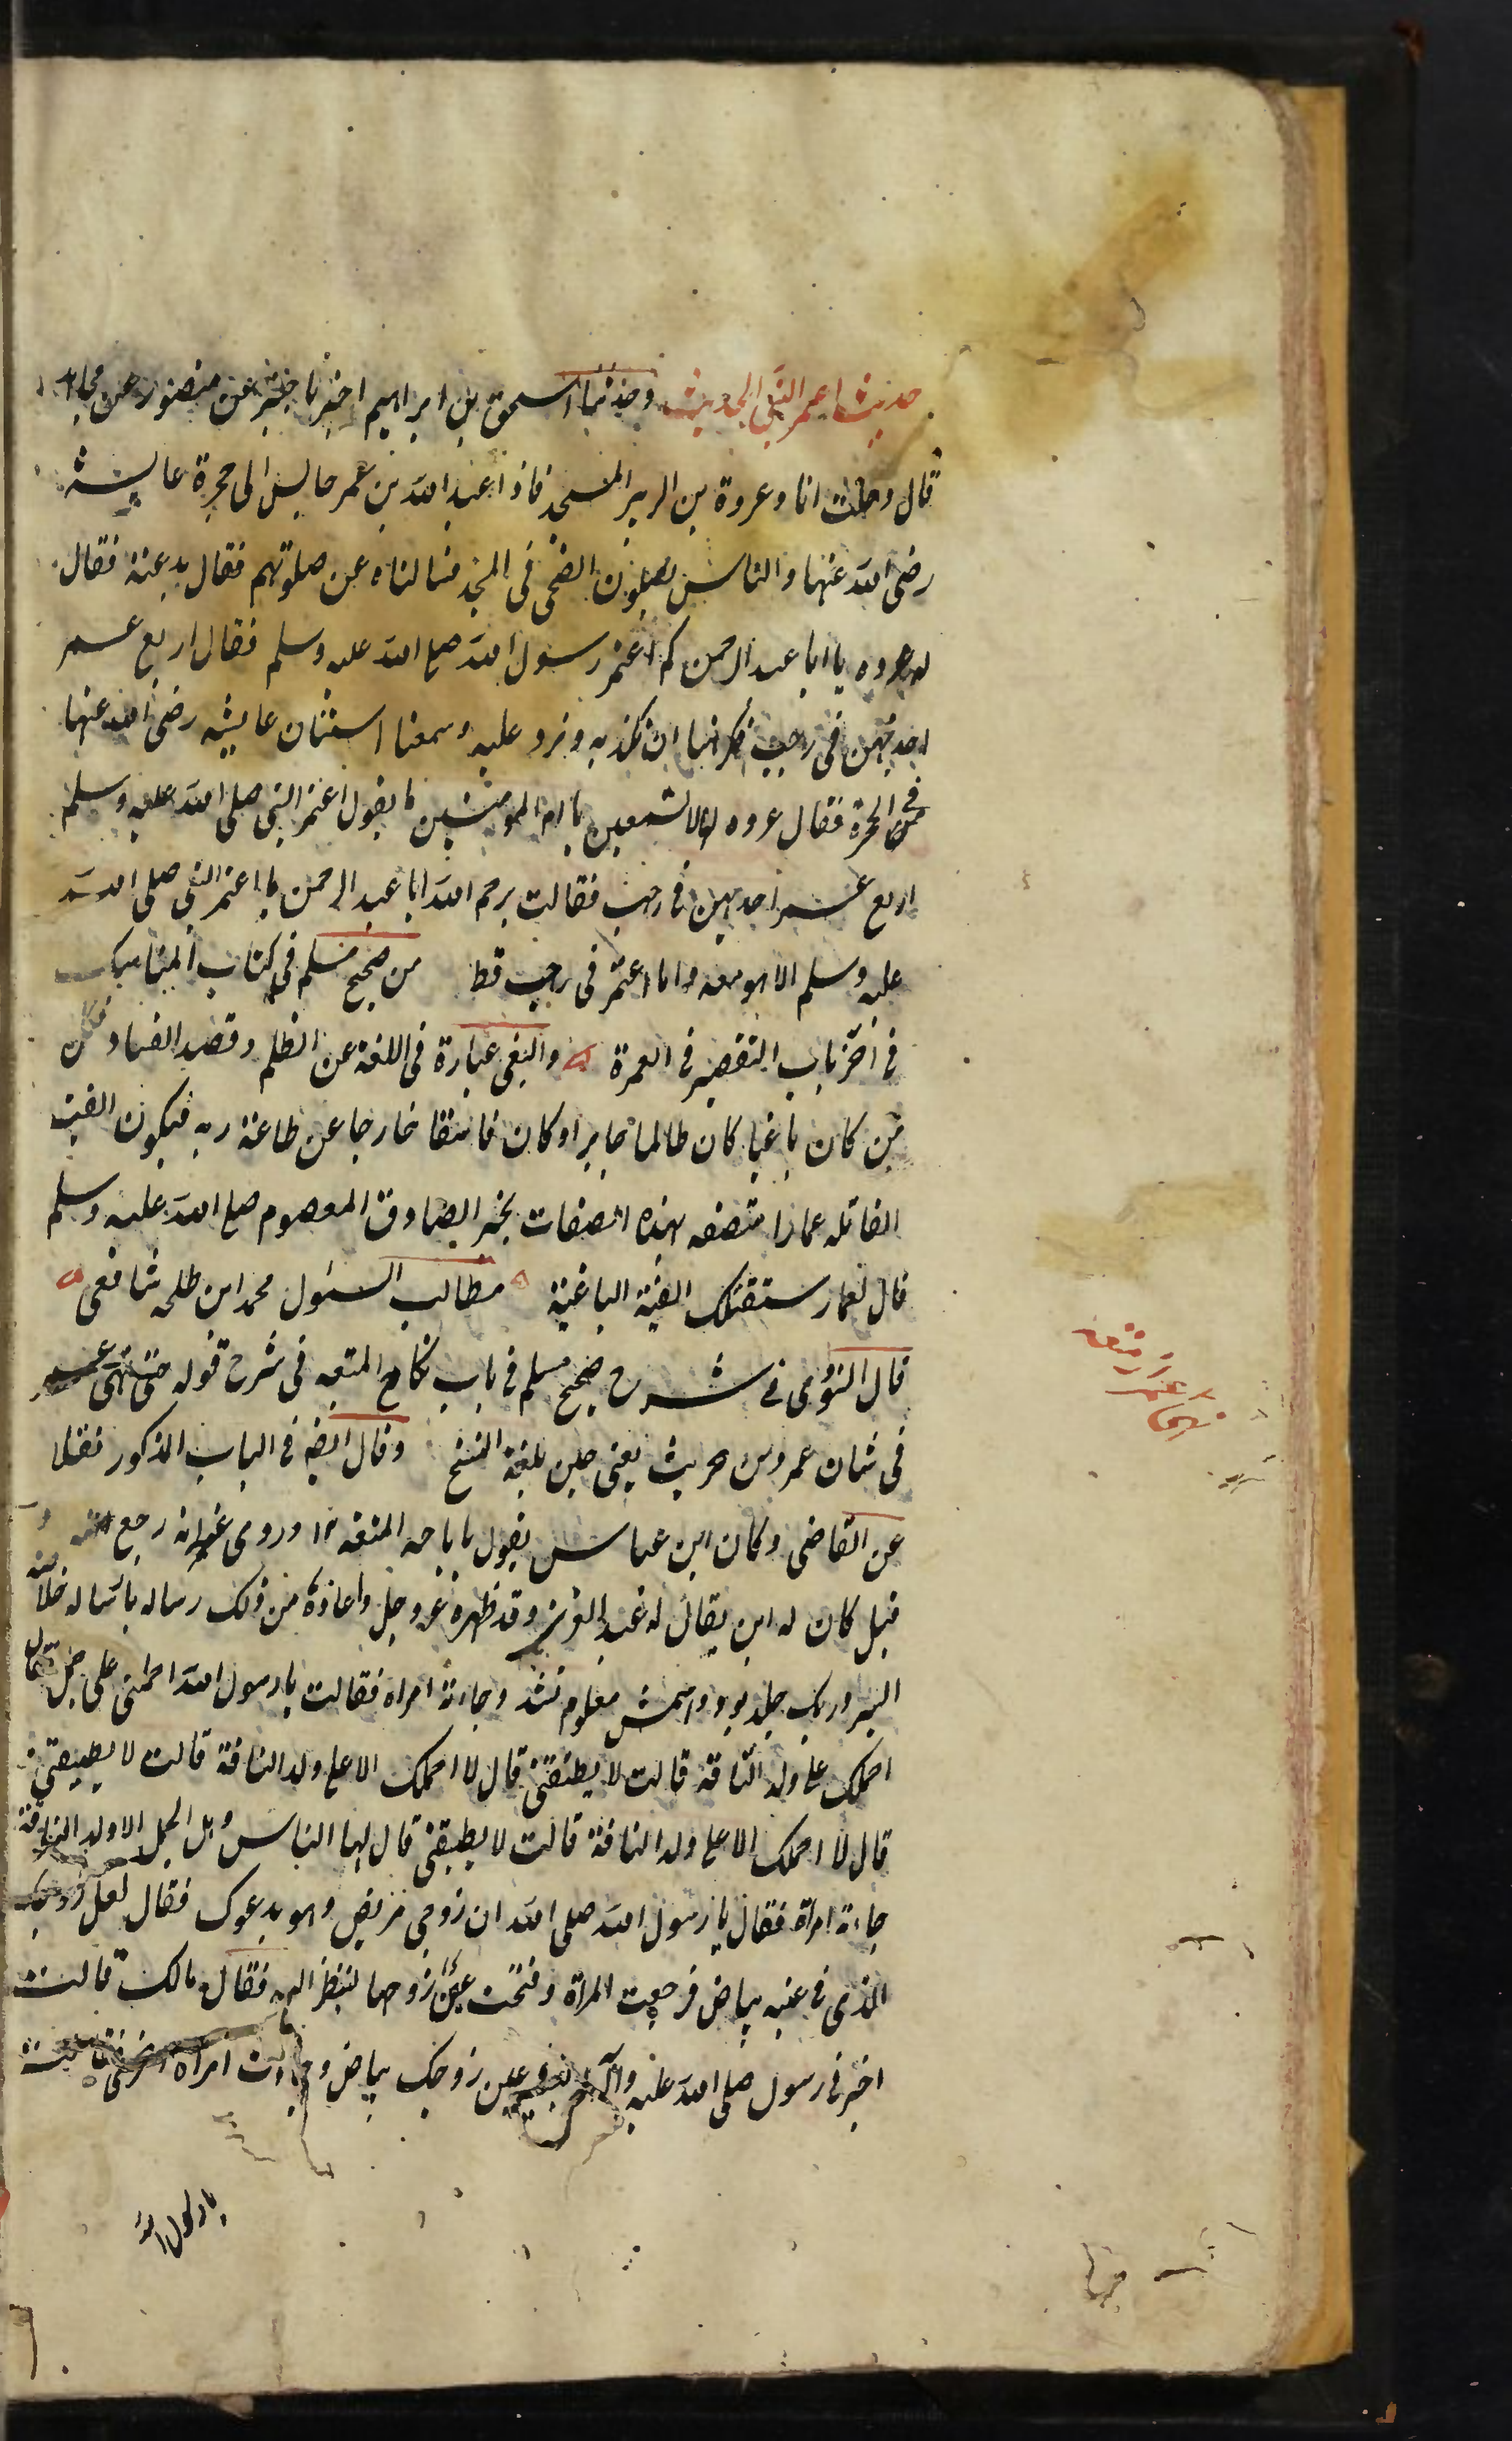 حديث اعمر النبي الحديث وحدثنا اسحق بن ابراهيم اخبرنا جرير عن منصور عن مجاهد
قال دخلت انا وعروة بن الزبير المسجد فاذا عبد الله بن عمر جالس الى حجرة عايشة
رضى الله عنها والناس يصلون الضحى فى المسجد فسالناه عن صلوتهم فقال بدعة فقال
له عروه يا ابا عبد الرحمن كم اعتمر رسول الله صلع الله عليه وسلم فقال اربع عمر
احديهن فى رجب فكرهنا ان نكذبه ونرد عليه وسمعنا استنان عايشه رضى الله عنها
فى الحجرة فقال عروه الا تسمعين يا ام المومنين ما يقول اعتمر النبى صلى الله عليه وسلم
اربع عمر احديهن فى رجب فقالت يرحم الله ابا عبد الرحمن ما اعتمر النبى صلى الله
عليه وسلم الا هو معه وما اعتمر فى رجب قط من صحيح مسلم فى كتاب المناسك
فى اخر باب التقصير فى العمرة والبغى عبارة فى اللغة عن الظلم وقصد الفساد فكل
من كان باغيا كان ظالما جايرا وكان فاسقا خارجا عن طاعة ربه فيكون الفئة
القاتله عمارا متصفه بهذه الصفات بخبر الصادق المعصوم صلع الله عليه وسلم
قال لعمار ستقتلك الفئة الباغية مطالب السئول محمد ابن طلحه شافعى
قال النووى فى شرح صحيح مسلم فى باب نكاح المتعه فى شرح قوله حتى نهى عمر
فى شان عمرو بن حريث يعنى حين بلغه النسخ وقال ايضا فى الباب المذكور نقلا
عن القاضى وكان ابن عباس يقول باباحه المتعه ١٢ وروى عنه انه رجع عنه
قيل كان له ابن يقال له عبد العزيز وقد ظهره عزوجل واعاذه من ذلك رساله
السرور يك جلد بود واسمش معلوم نشد وجاءته امراه فقالت يا رسول الله احملنى على جمل فقال
احملك على ولد الناقة قالت لا يطيقنى قال لا احملك الا على ولد الناقة قالت لا يطيقنى
قال لا احملك الا على ولد الناقة قالت لا يطيقنى قال لها الناس وهل الجمل الا ولد الناقة
جاءته امراة فقال يا رسول الله صلى الله ان زوجى مريض وهو يدعوك فقال لعل زوجك
الذى فى عينه بياض فرجعت المراة وفتحت عين زوجها لينظر اليه فقال مالك قالت
اخبرنى رسول صلى الله عليه وآله عين زوجك بياض وجاءت امراة اخرى
يا رسول الله
نهى عمر از متعه